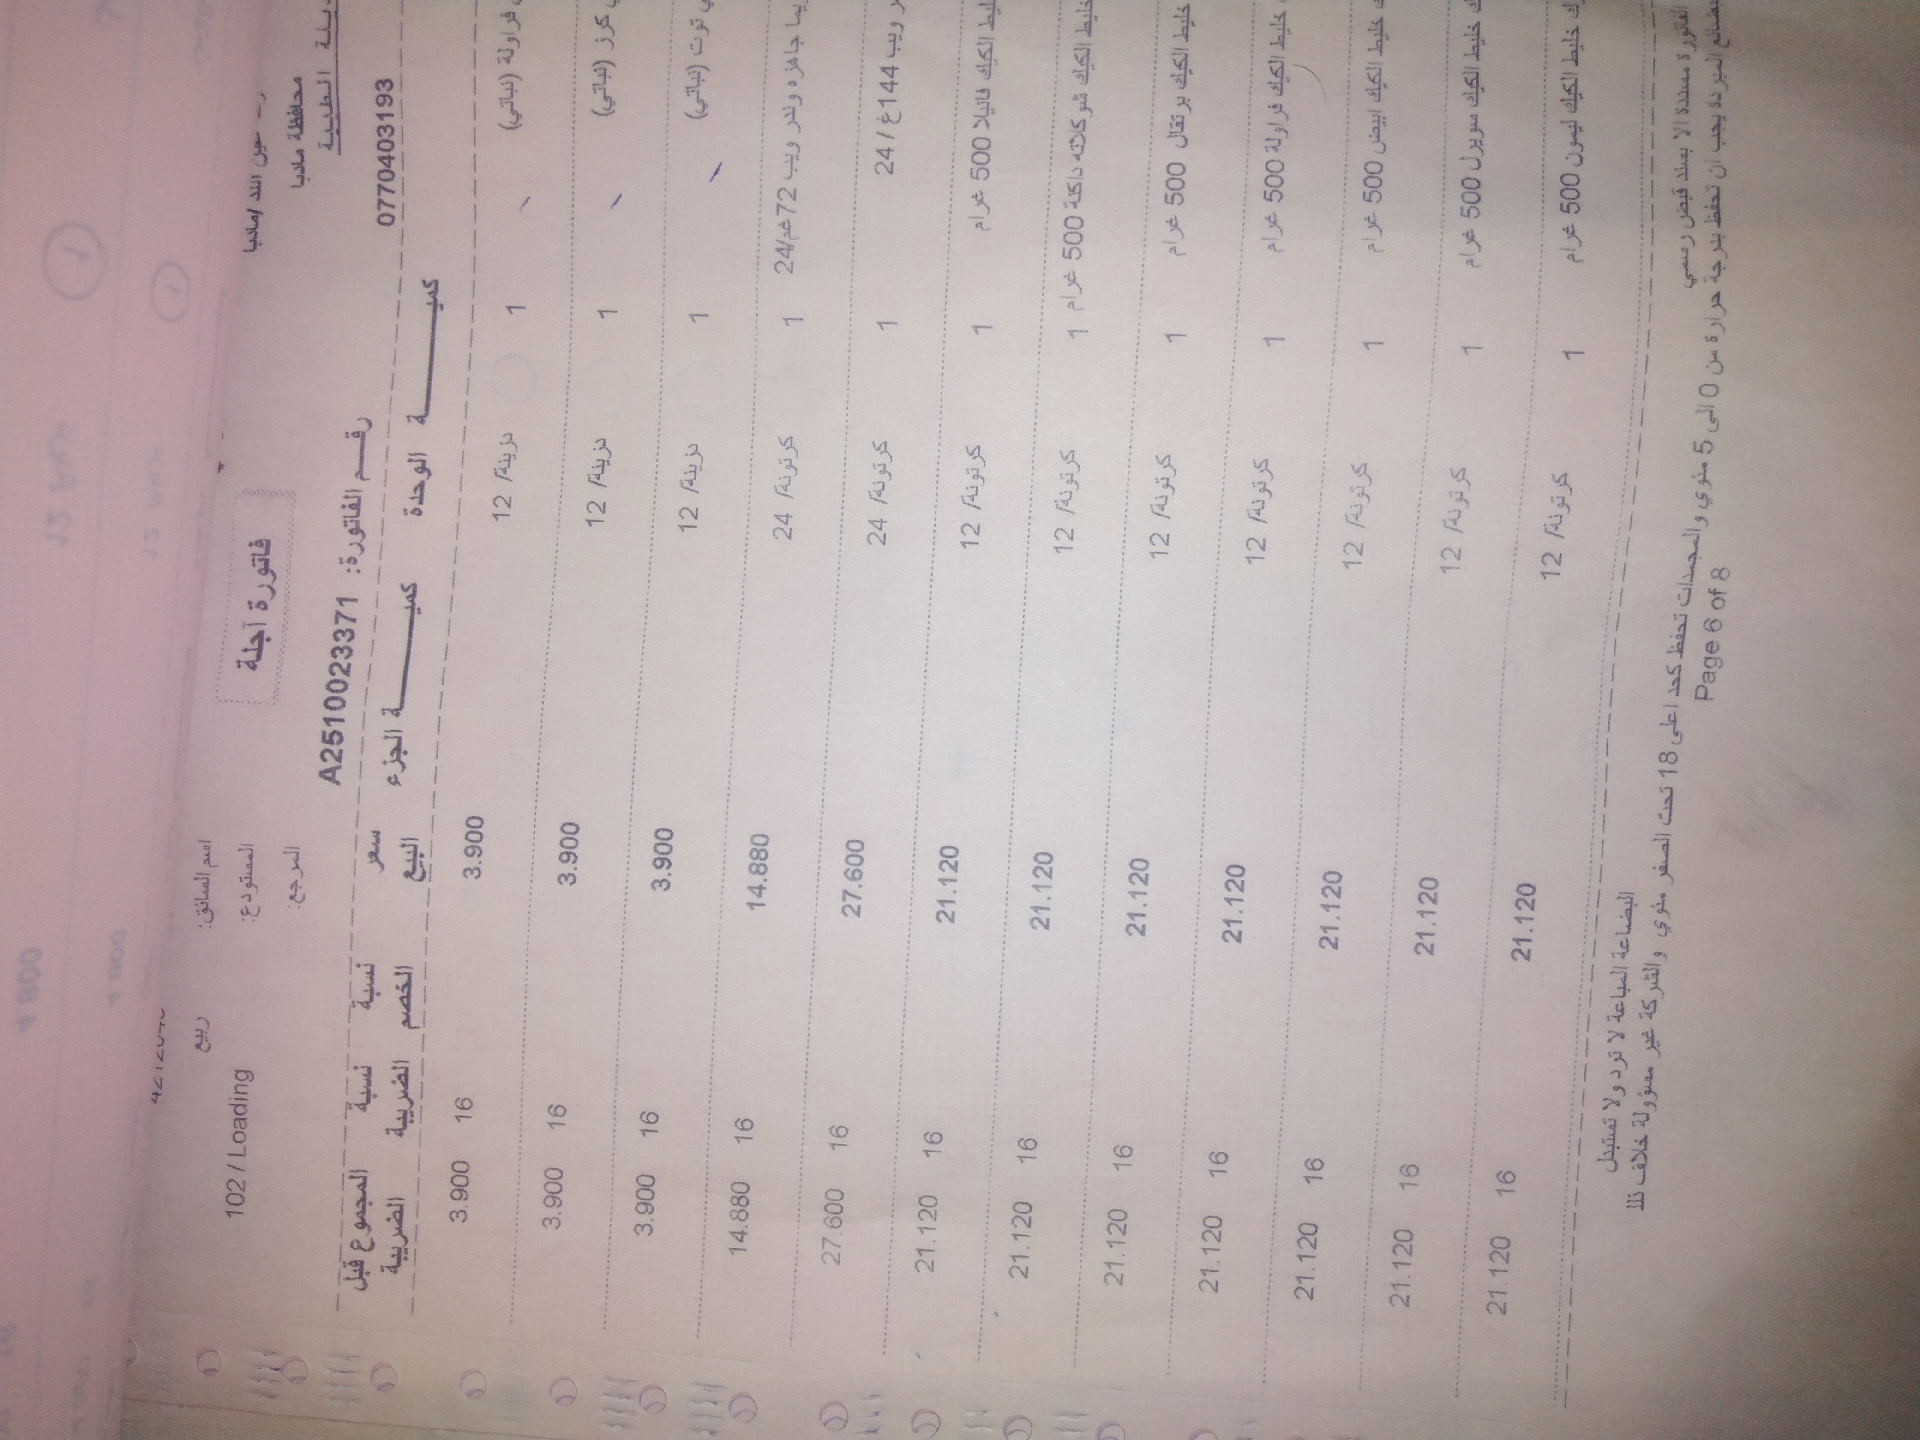 حي الله /مادبا
محافظة مادبا
الطيبة
0770403193
فاتورة آجلة
اسم السائق: ربيع
المستودع: 102 / Loading
المرجع:
رقم الفاتورة: A2510023371
كميـــــة الوحدة كميـــــة الجزء سعر البيع نسبة الخصم نسبة الضريبة المجموع قبل الضريبة
فراولة (نباتي) 1 دزينة/ 12 3.900 16 3.900
كرز (نباتي) 1 دزينة/ 12 3.900 16 3.900
توت (نباتي) 1 دزينة/ 12 3.900 16 3.900
جاهزه وندر ويب 72غم/24 1 كرتونة/ 24 14.880 16 14.880
ويب 144غ / 24 1 كرتونة/ 24 27.600 16 27.600
الكيك فانيلا 500 غرام 1 كرتونة/ 12 21.120 16 21.120
خليط الكيك شوكلاته داكنة 500 غرام 1 كرتونة/ 12 21.120 16 21.120
خليط الكيك برتقال 500 غرام 1 كرتونة/ 12 21.120 16 21.120
خليط الكيك فراولة 500 غرام 1 كرتونة/ 12 21.120 16 21.120
خليط الكيك ابيض 500 غرام 1 كرتونة/ 12 21.120 16 21.120
خليط الكيك سويرل 500 غرام 1 كرتونة/ 12 21.120 16 21.120
خليط الكيك ليمون 500 غرام 1 كرتونة/ 12 21.120 16 21.120
البضاعة المباعة لا ترد ولا تستبدل
الفاتورة مسددة الا بسند قبض رسمي
المبردة يجب ان تحفظ بدرجة حرارة من 0 الى 5 مئوي والمجمدات تحفظ كحد اعلى 18 تحت الصفر مئوي والشركة غير مسؤولة خلاف ذلك
Page 6 of 8